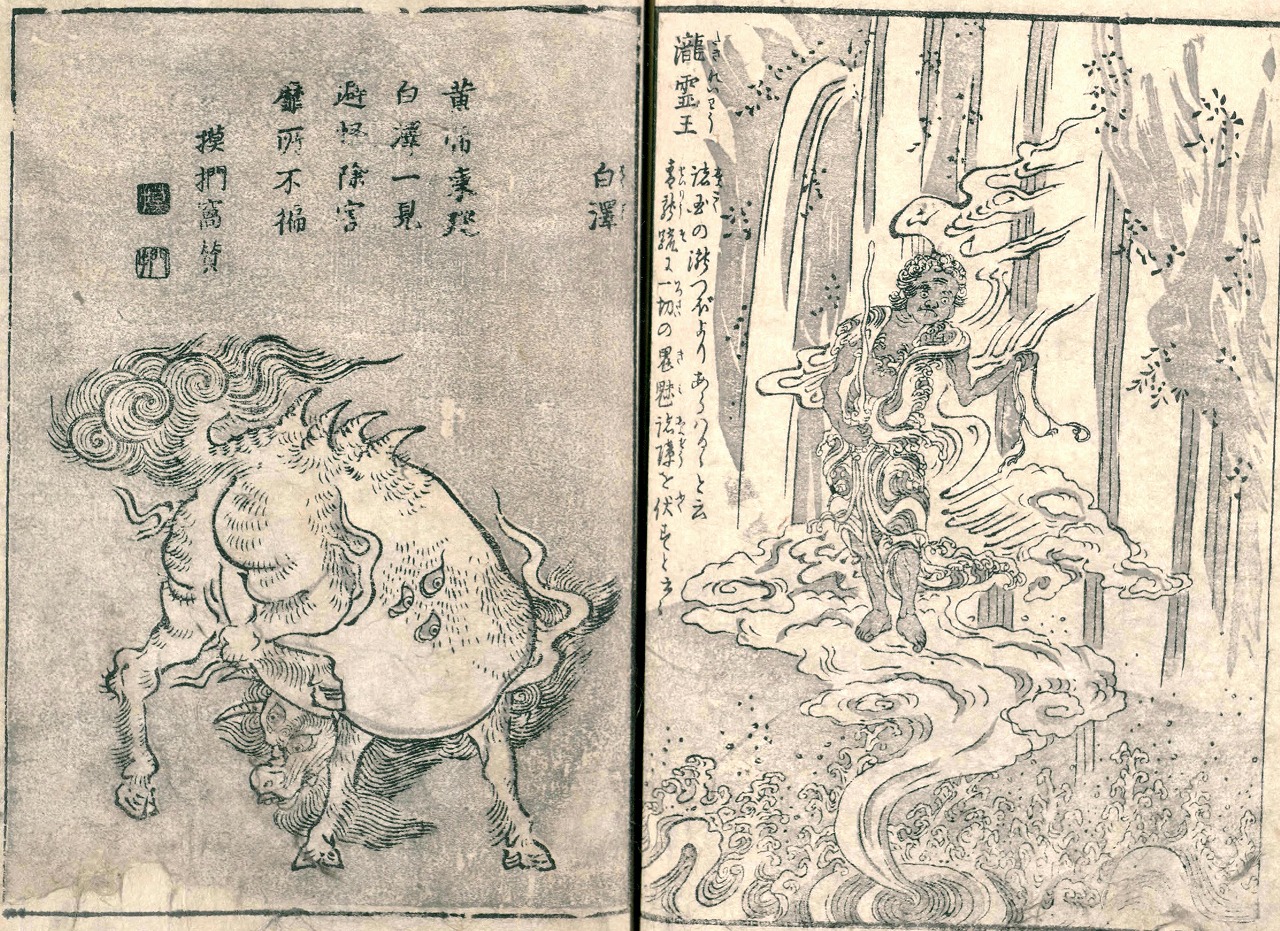 瀧霊王
たきれいわう
諸国の瀧つぼよりあらはるゝと云
青龍疏に一切の鬼魅諸障を伏すと云々
白澤
黄帝東巡
白澤一見
避怪除害
靡所不徧
摸捫窩賛